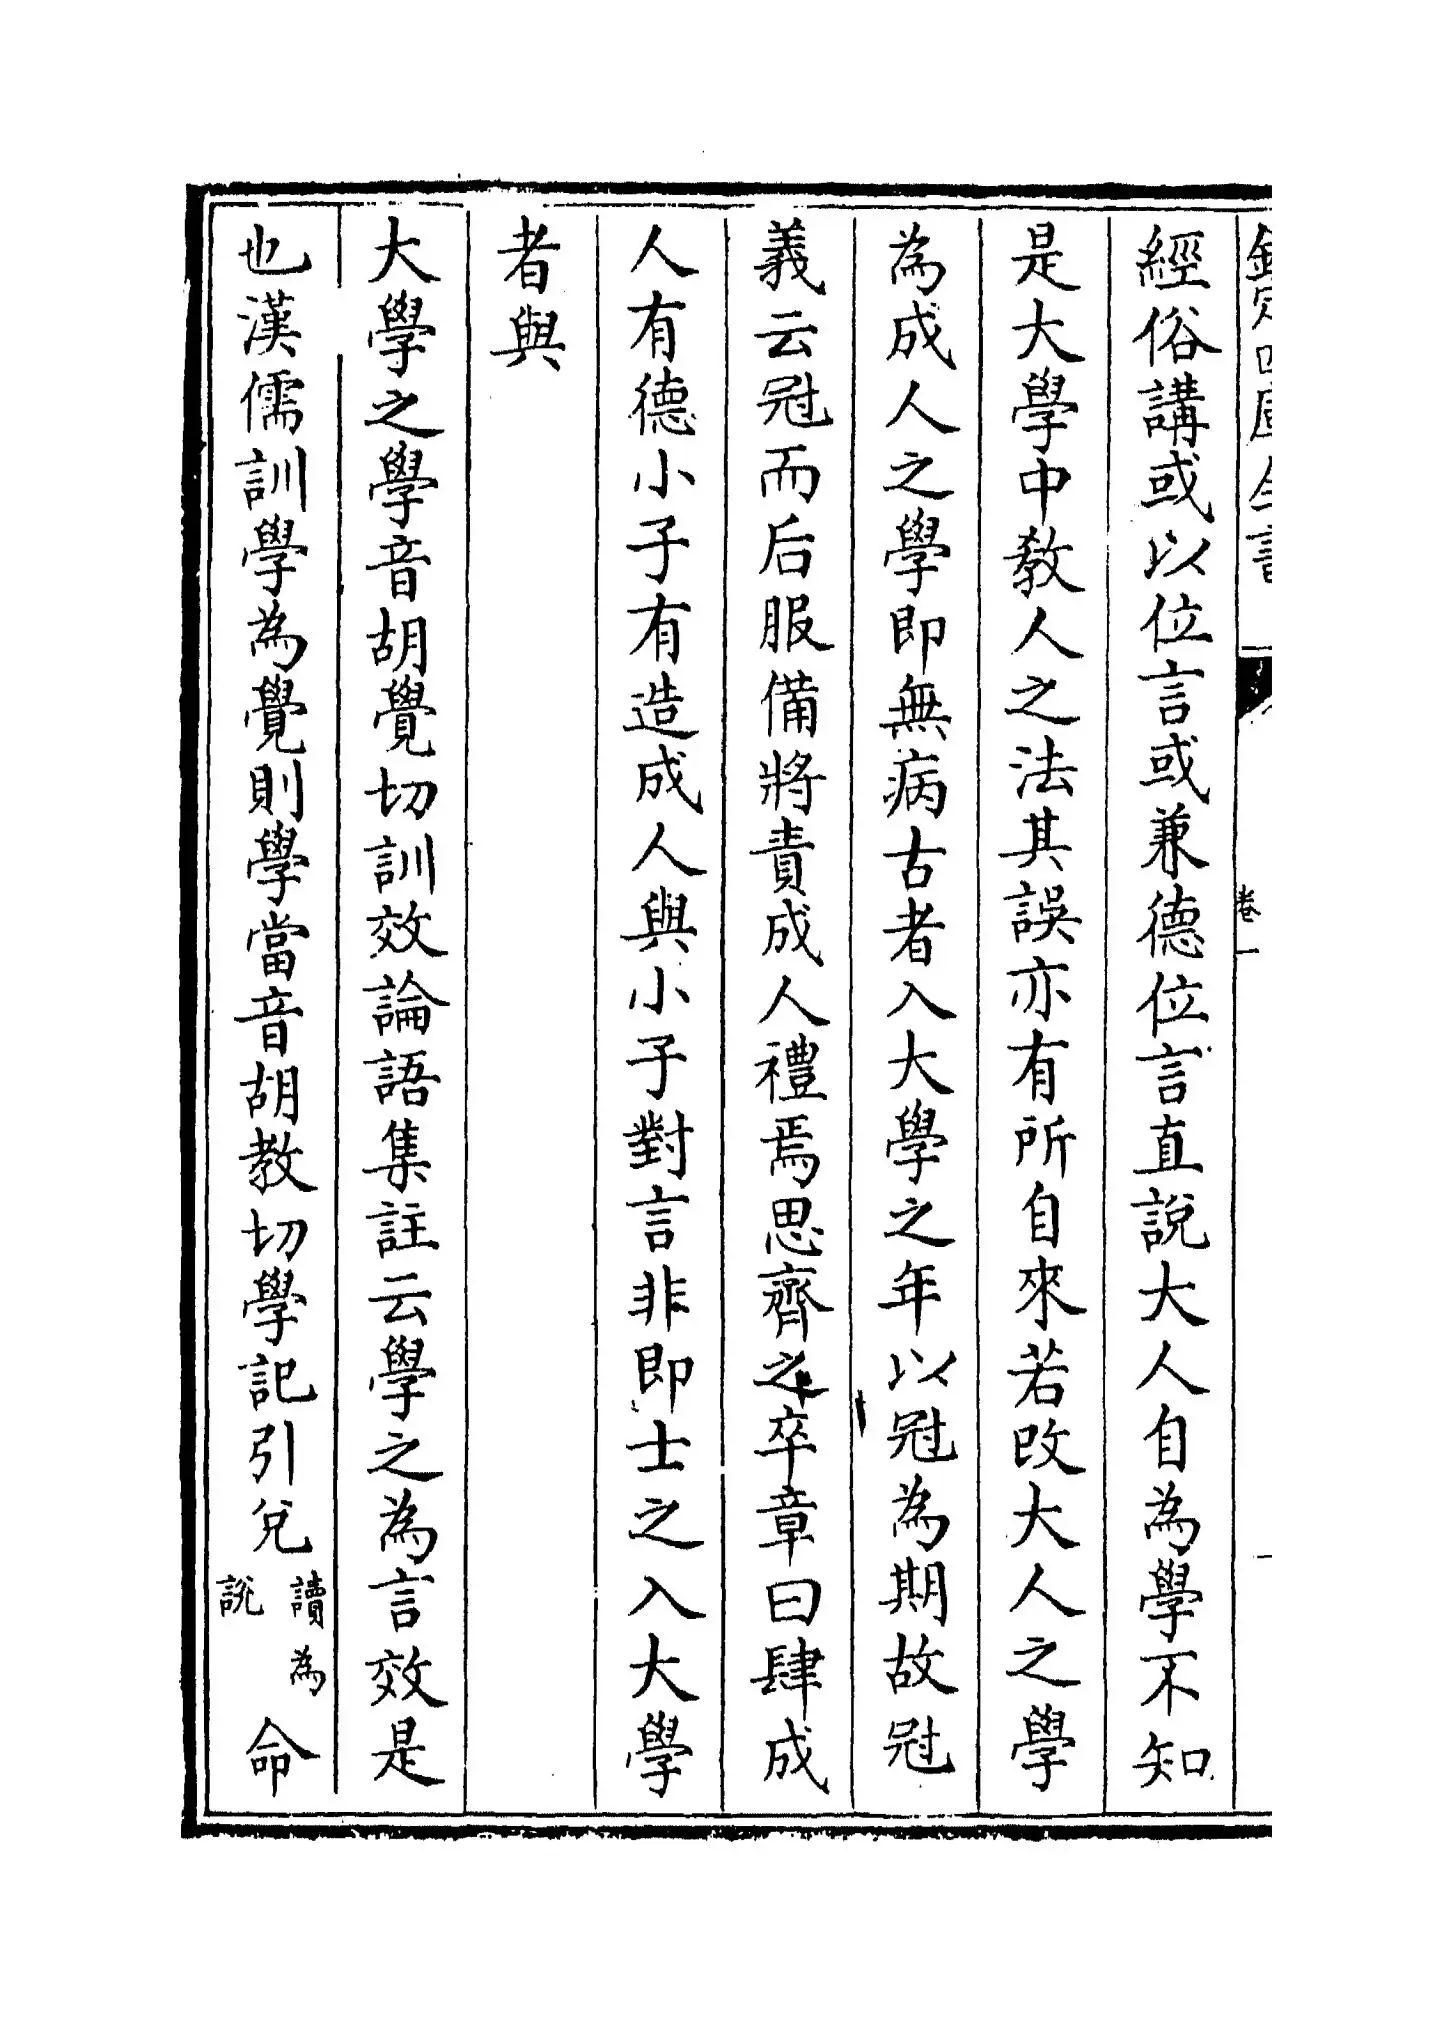 欽定四庫全書
卷一
經俗講或以位言或兼德位言直說大人自為學不知
是大學中教人之法其誤亦有所自來若改大人之學
為成人之學即無病古者入大學之年以冠為期故冠
義云冠而后服備將責成人禮焉思齊之卒章曰肆成
人有德小子有造成人與小子對言非即士之入大學
者與
大學之學音胡覺切訓效論語集註云學之為言效是
也漢儒訓學為覺則學當音胡教切學記引兌讀為說命